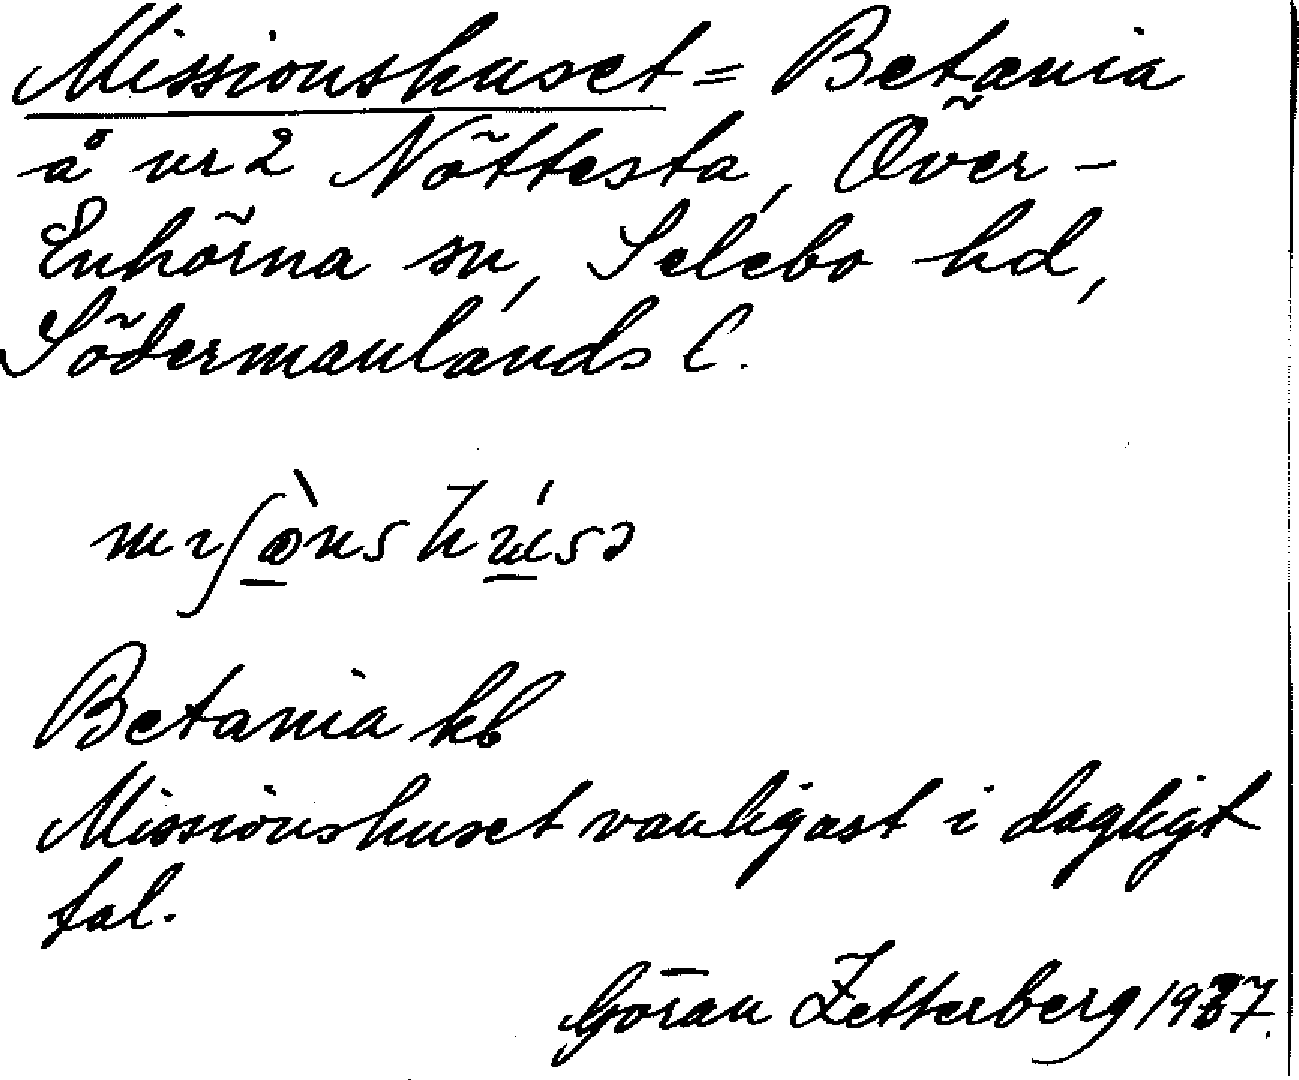 Missionshuset = Betania
å nr 2 Nöttesta, Över-
Enhörna sn, Selebo hd,
Södermanlands l.
Betania kb
Missionshuset vanligast i dagligt
tal.
Göran Zetterberg 1937.